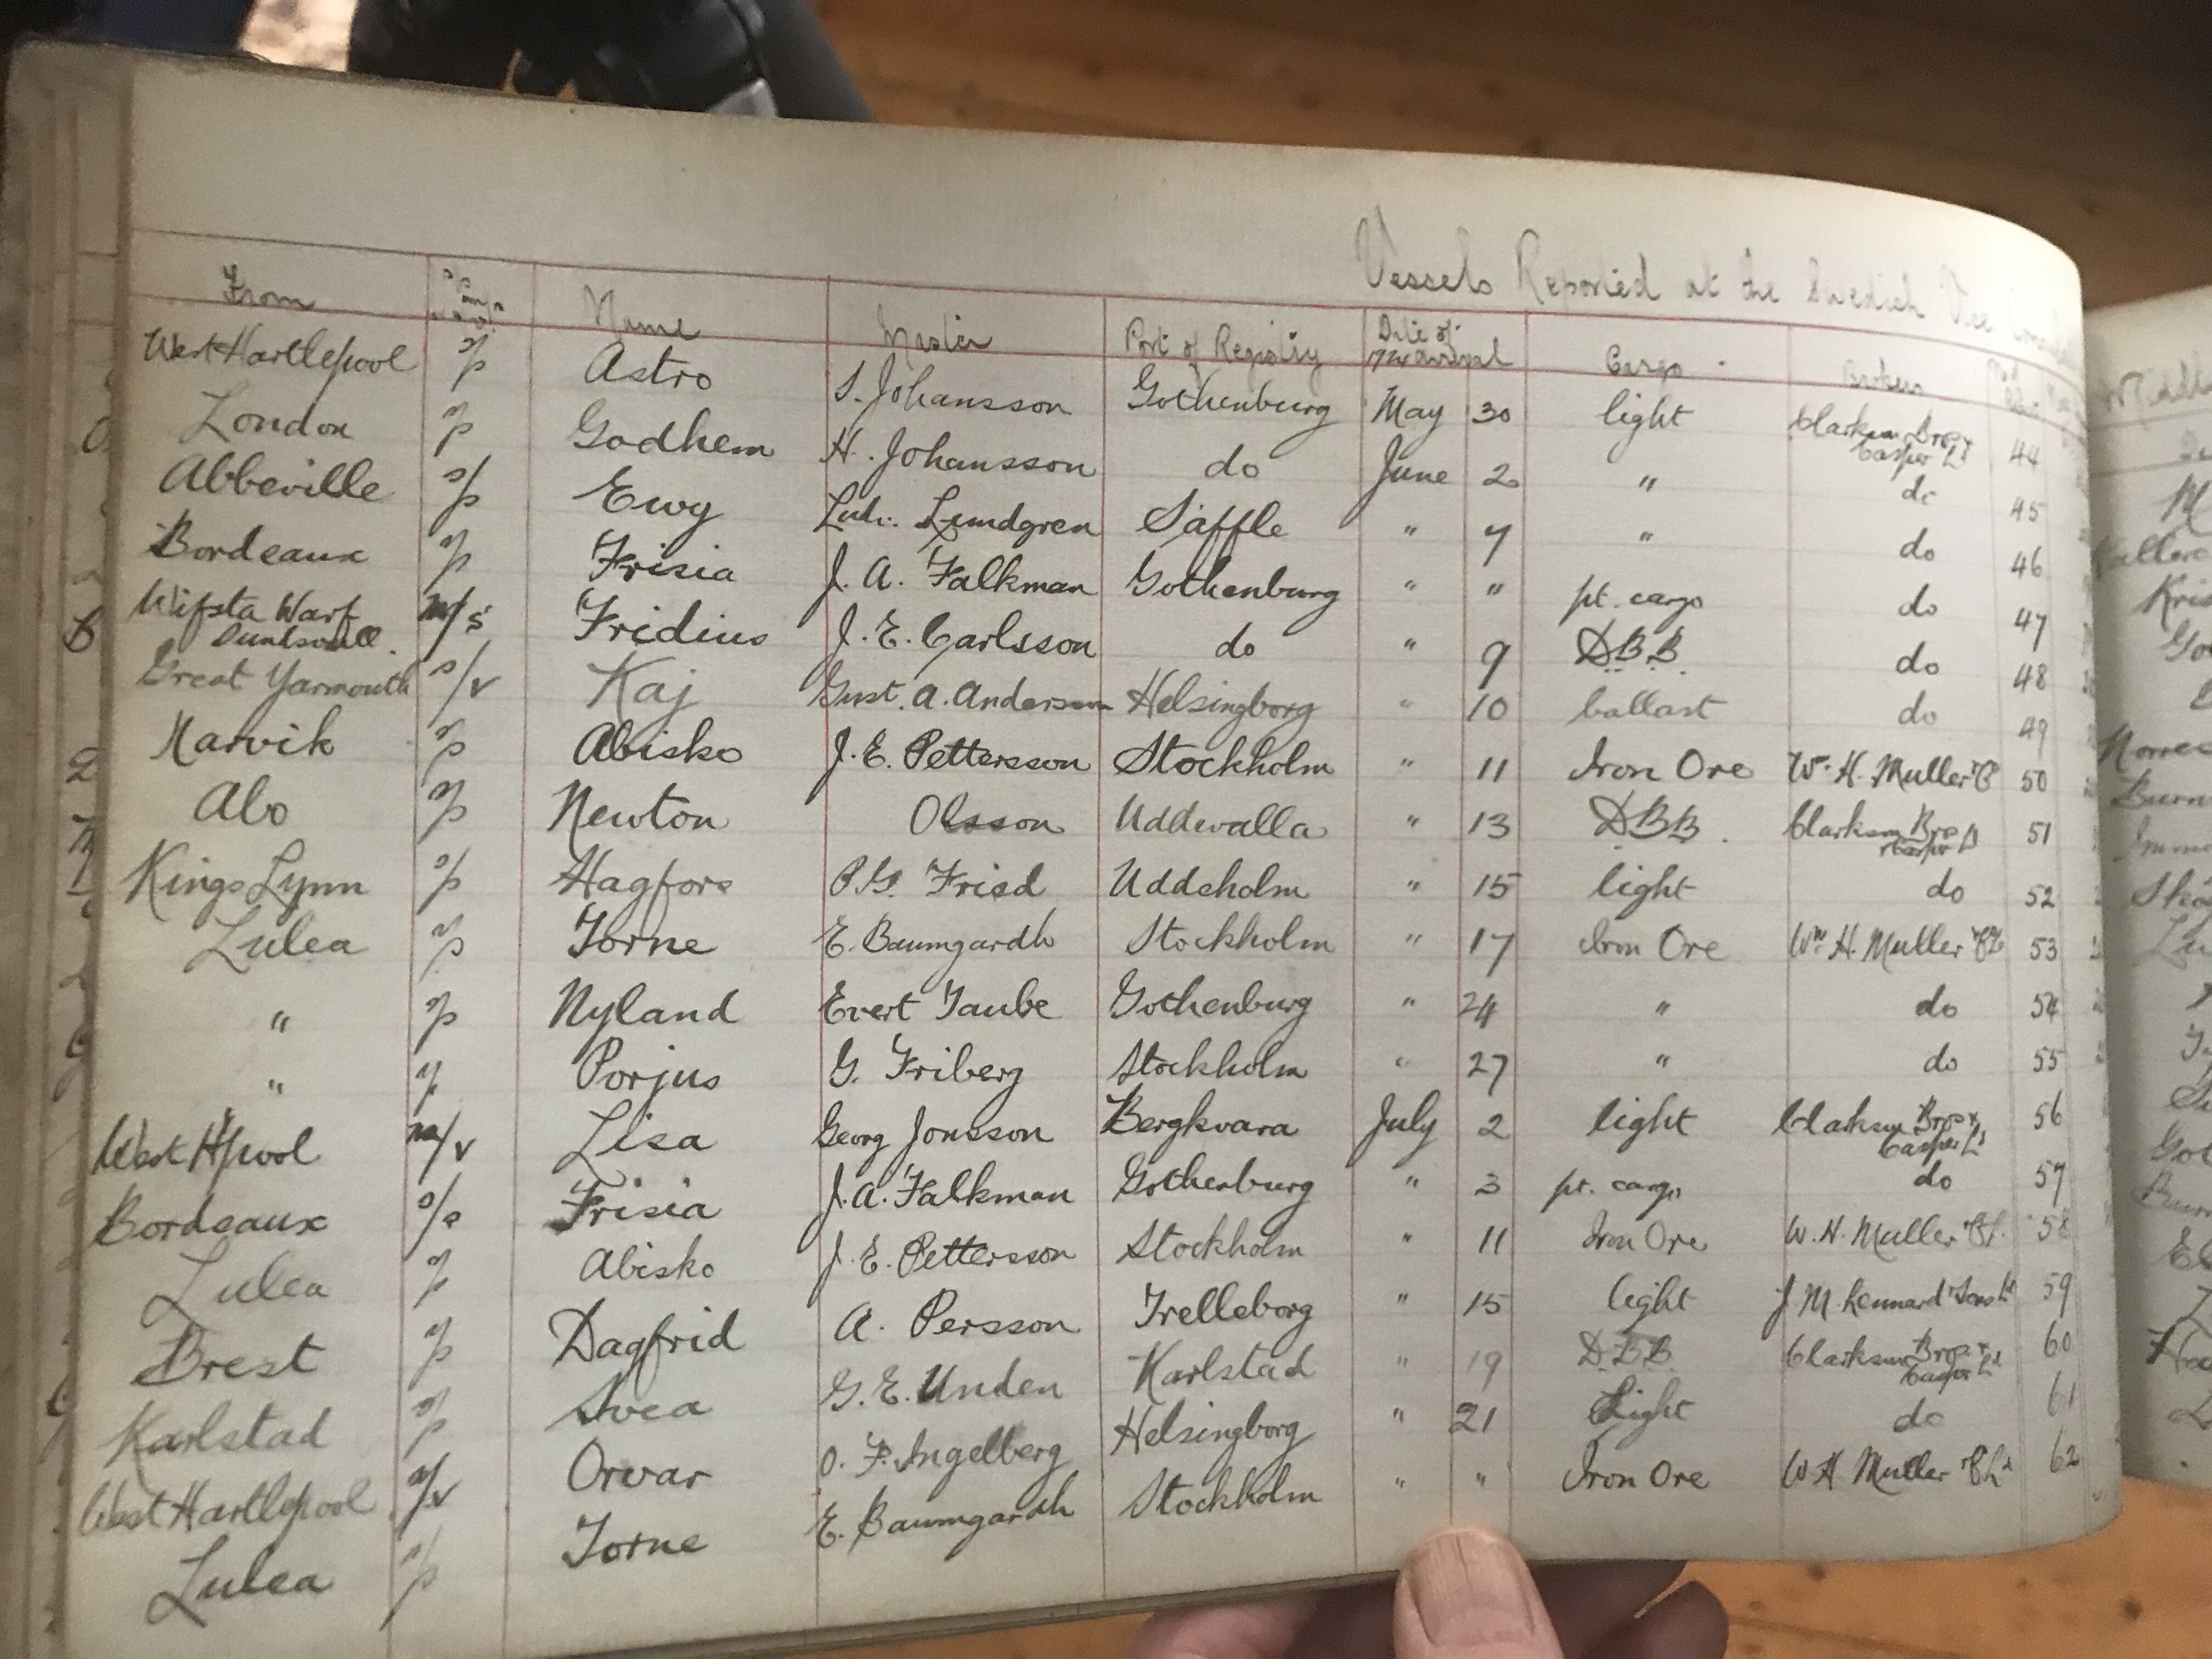 Vessels Reported at the Swedish Vice
From Name Master Port of Registry Date of arrival Cargo Brokers
West Hartlepool s/s Astro S. Johansson Gothenburg May 30 light Clarkson Bros & Casper Ld 44
London s/s Godhem H. Johansson do June 2 " do 45
Abbeville s/s Ewy Ludv. Lundgren Säffle " 7 " do 46
Bordeaux s/s Frisia J. A. Falkman Gothenburg " " pt. cargo do 47
Wifsta Warf m/s Fridius J. E. Carlsson do " 9 D.B.B. do 48
Great Yarmouth s/v Kaj Gust. A. Andersson Helsingborg " 10 ballast do 49
Narvik s/s Abisko J. E. Pettersson Stockholm " 11 Iron Ore W. H. Muller & Co 50
Abo s/s Newton Olsson Uddevalla " 13 D.B.B. Clarkson Bros & Casper Ld 51
Kings Lynn s/s Hagfors P. G. Frisd Uddeholm " 15 light do 52
Lulea s/s Torne E. Baumgardh Stockholm " 17 Iron Ore Wm H. Muller & Co 53
" s/s Nyland Evert Taube Gothenburg " 24 " do 54
" s/s Porjus G. Friberg Stockholm " 27 " do 55
West H'pool m/v Lisa Georg Jonsson Bergkvara July 2 light Clarkson Bros & Casper Ld 56
Bordeaux s/s Frisia J. A. Falkman Gothenburg " 3 pt. cargo do 57
Lulea s/s Abisko J. E. Pettersson Stockholm " 11 Iron Ore W. H. Muller & Co. 58
Brest s/s Dagfrid A. Persson Trelleborg " 15 light J. M. Lennard & Sons Ld 59
Karlstad s/s Svea G. E. Unden Karlstad " 19 D.B.B. Clarkson Bros & Casper Ld 60
West Hartlepool s/v Orvar O. F. Ingelberg Helsingborg " 21 Light do 61
Lulea s/s Torne E. Baumgardh Stockholm " " Iron Ore W H Muller & Co Ld 62